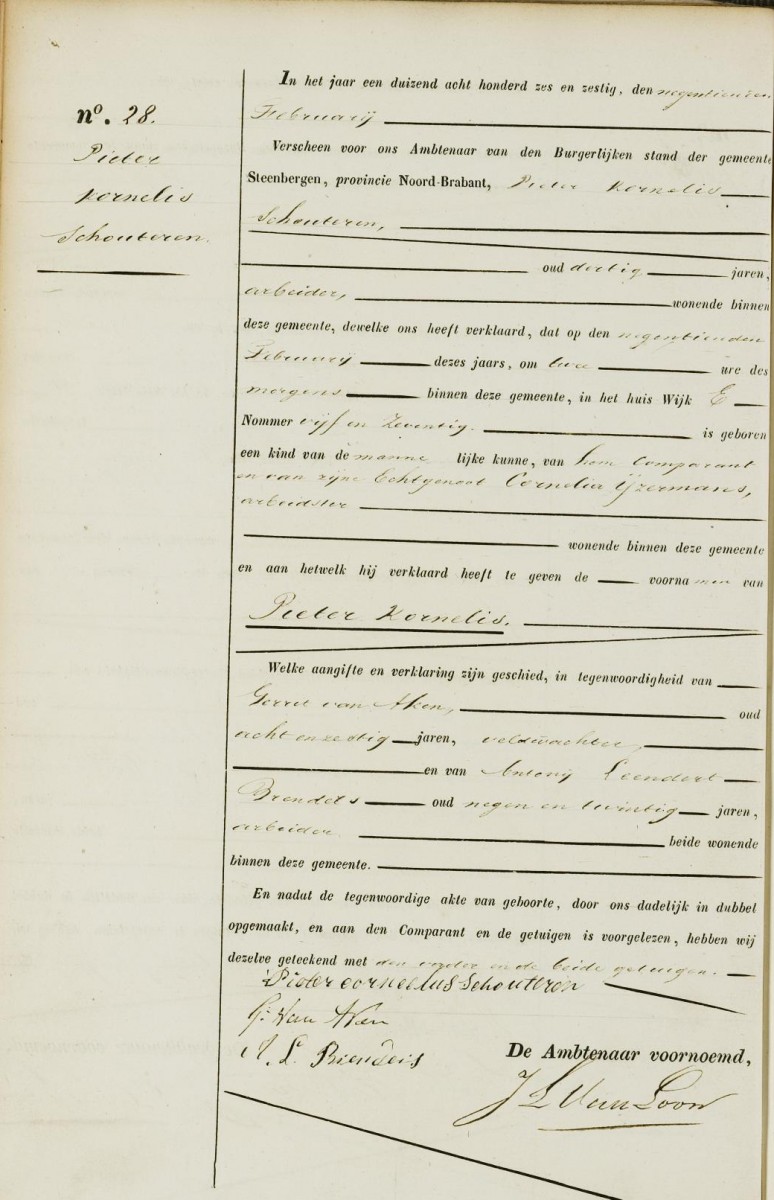 nº. 28.
Pieter
Kornelis
Schouteren.
In het jaar een duizend acht honderd zes en zestig, den negentienden
Februarij
Verscheen voor ons Ambtenaar van den Burgerlijken stand der gemeente
Steenbergen, provincie Noord-Brabant, Pieter Kornelis
Schouteren,
oud dertig jaren,
arbeider, wonende binnen
deze gemeente, dewelke ons heeft verklaard, dat op den negentienden
Februarij dezes jaars, om twee ure des
morgens binnen deze gemeente, in het huis Wijk E
Nommer vijf en zeventig. is geboren
een kind van de manne lijke kunne, van hem Comparant
en van zijne Echtgenoot Cornelia IJzermans,
arbeidster
wonende binnen deze gemeente
en aan hetwelk hij verklaard heeft te geven de voorna men van
Pieter Kornelis.
Welke aangifte en verklaring zijn geschied, in tegenwoordigheid van
Gerrit van Aken, oud
acht en zestig jaren, veldwachter,
en van Antonij Leendert
Brendels oud negen en twintig jaren,
arbeider beide wonende
binnen deze gemeente.
En nadat de tegenwoordige akte van geboorte, door ons dadelijk in dubbel
opgemaakt, en aan den Comparant en de getuigen is voorgelezen, hebben wij
dezelve geteekend met den vader en de beide getuigen.
Pieter cornelius Schouteren
G. Van Aken
A. L.
De Ambtenaar voornoemd,
J L Van Loon